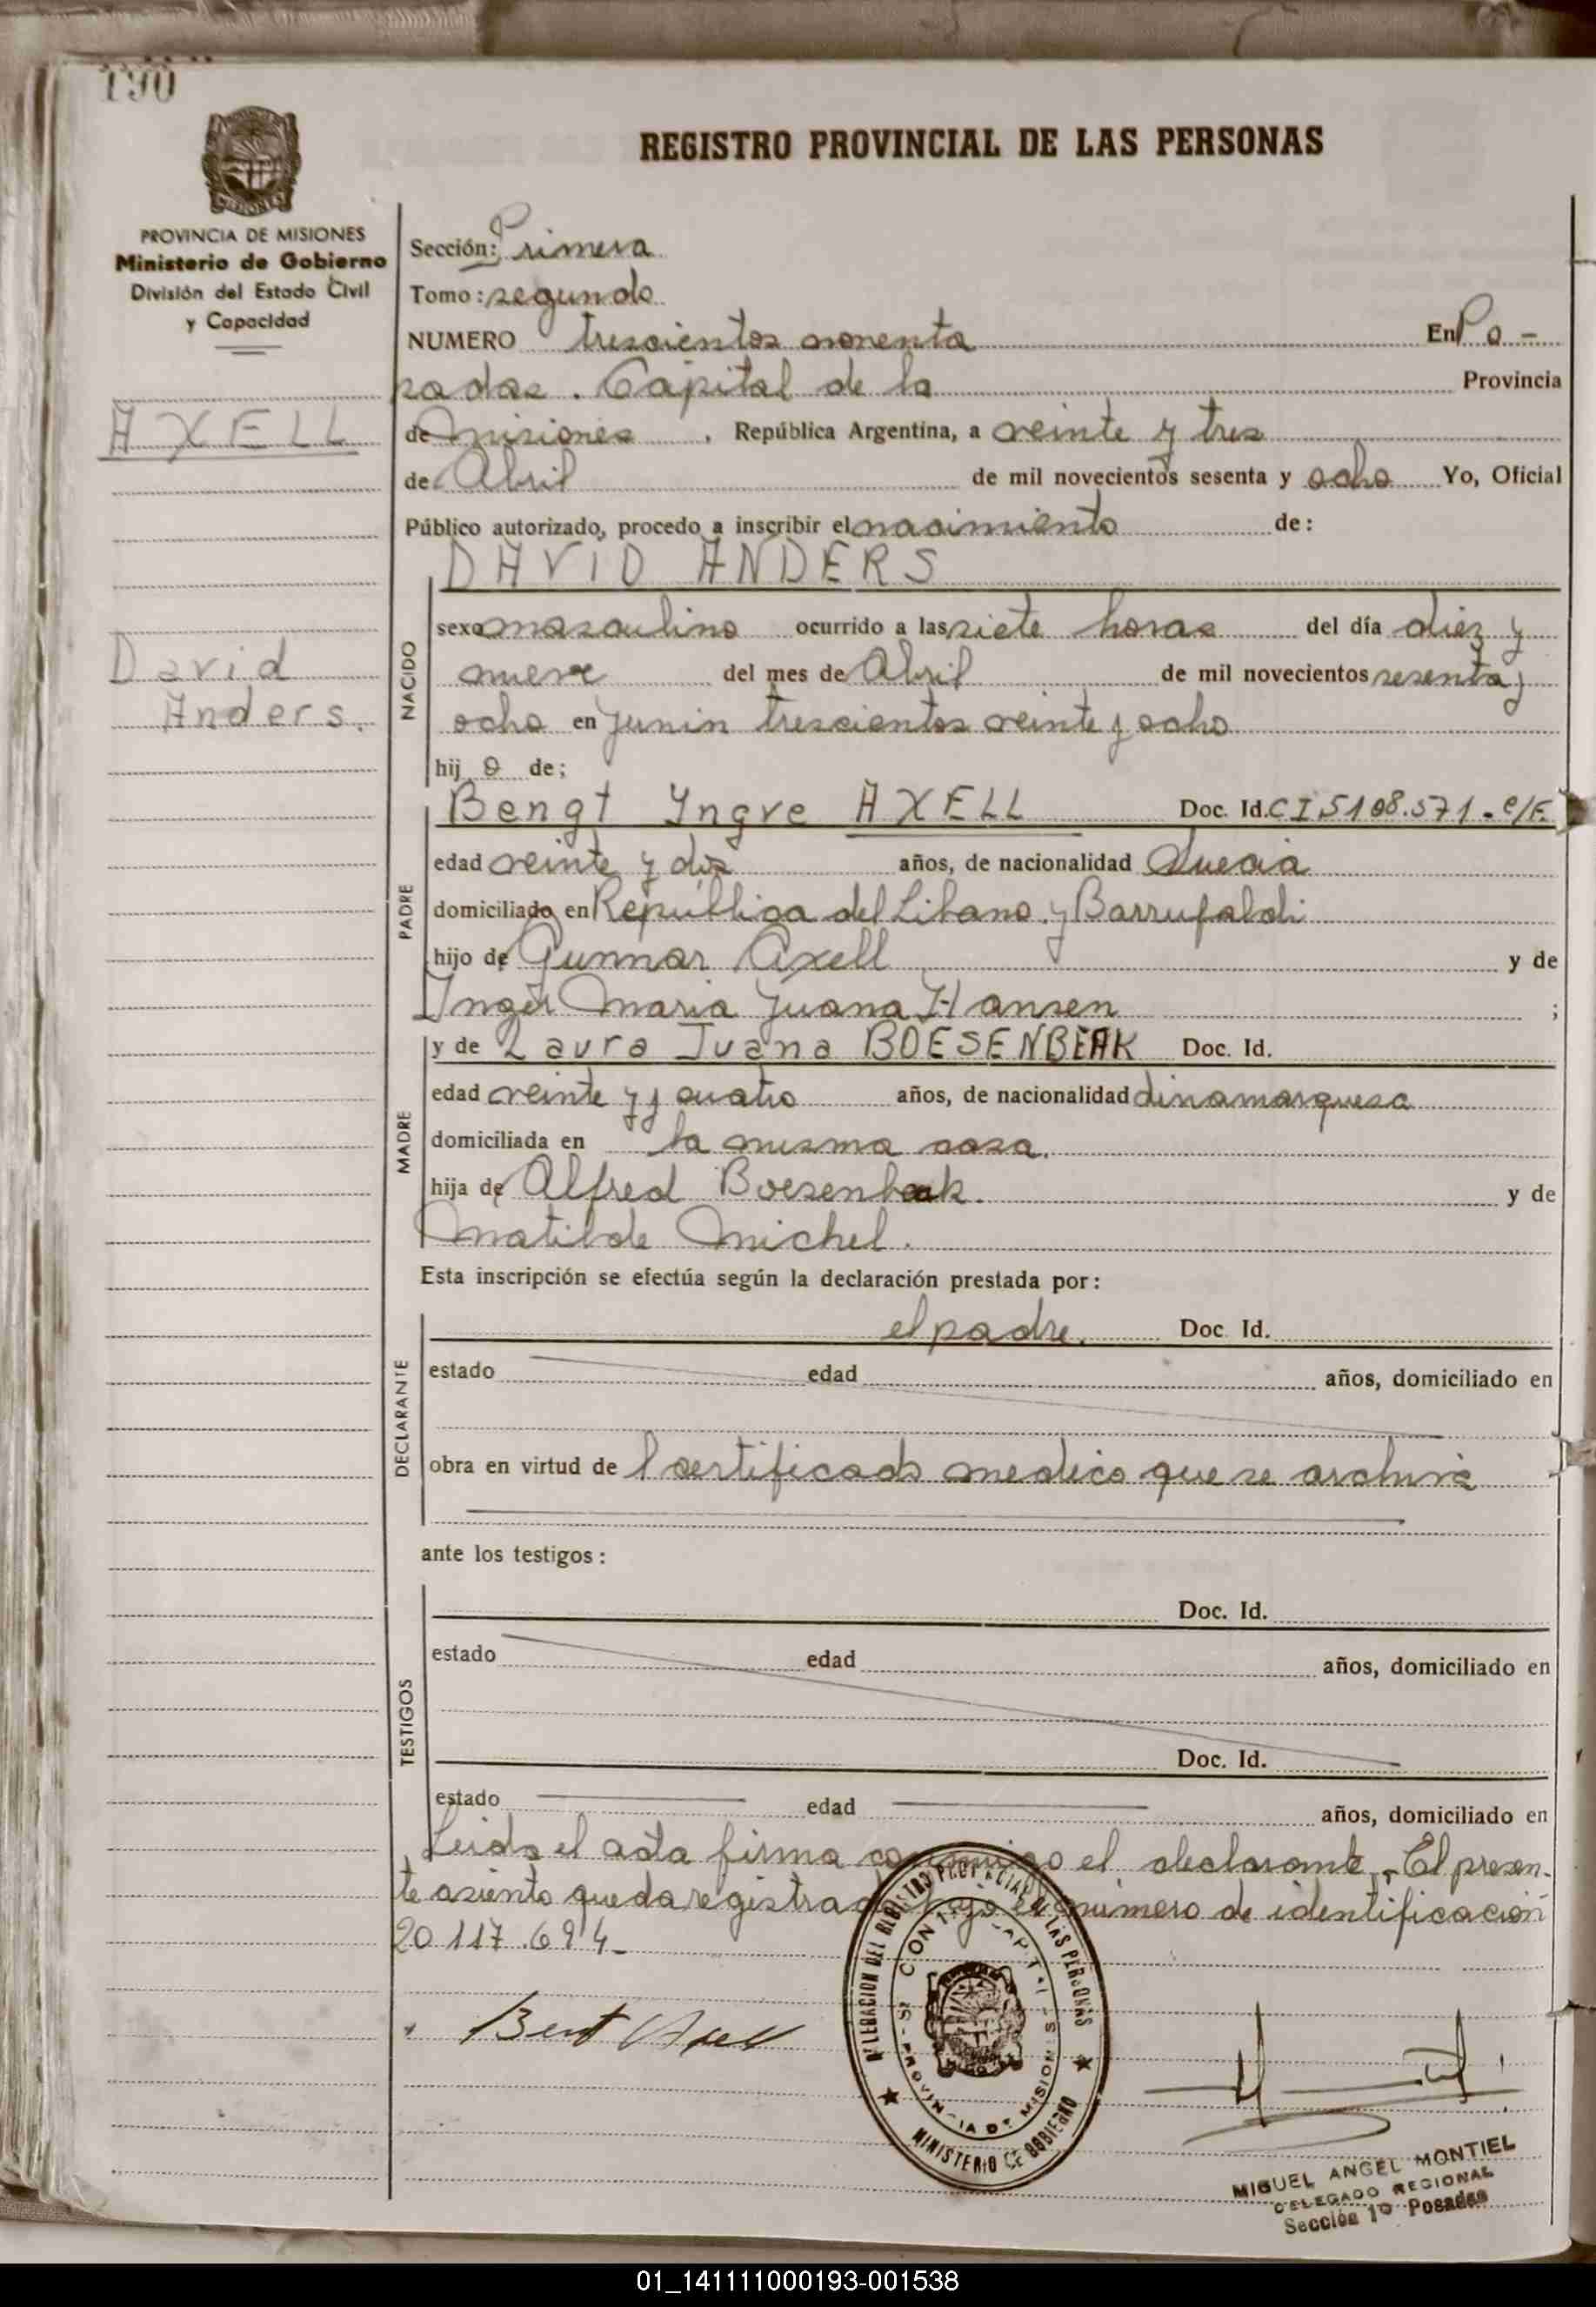 190
REGISTRO PROVINCIAL DE LAS PERSONAS
PROVINCIA DE MISIONES
Ministerio de Gobierno
División del Estado Civil
y Capacidad
AXELL
David
Anders.
Sección: Primera
Tomo: segundo
NUMERO trescientos nonenta En Po-
sadas. Capital de la Provincia
de Misiones, República Argentina, a veinte y tres
de Abril de mil novecientos sesenta y ocho Yo, Oficial
Público autorizado, procedo a inscribir el nacimiento de:
DAVID ANDERS
NACIDO
sexo masculino ocurrido a las siete horas del día diez y
nueve del mes de Abril de mil novecientos sesenta y
ocho en Junin trescientos veinte y ocho
hijo de;
Bengt Yngve AXELL Doc. Id. CI 5108.571.-c/F.
PADRE
edad veinte y dos años, de nacionalidad Suecia
domiciliado en República del Libano y Barrufaldi
hijo de Gunnar Axell y de
Inger Maria Juana Hansen ;
y de Laura Juana BOESENBEAK Doc. Id.
MADRE
edad veinte y cuatro años, de nacionalidad dinamarquesa
domiciliada en la misma casa.
hija de Alfred Boesenbeak. y de
Matilde Michel.
Esta inscripción se efectúa según la declaración prestada por:
el padre. Doc. Id.
DECLARANTE
estado edad años, domiciliado en
obra en virtud del certificado medico que se archiva
ante los testigos:
Doc. Id.
TESTIGOS
estado edad años, domiciliado en
Doc. Id.
estado edad años, domiciliado en
Leida el acta firma conmigo el declarante. El presen-
te asiento queda registrado bajo el número de identificación
20.117.694-
Bent Axell
DELEGACION DEL REGISTRO PROVINCIAL DE LAS PERSONAS
PROVINCIA DE MISIONES
MINISTERIO DE GOBIERNO
MIGUEL ANGEL MONTIEL
DELEGADO REGIONAL
Sección 1º Posadas
01_141111000193-001538